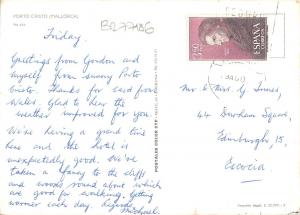 PORTO CRISTO (MALLORCA)
B277456
Friday.
Greetings from Gordon and
myself from sunny Porto
Cristo. Thanks for card from
Wales. Glad to hear the
weather improved for you.
We're having a grand time
here and the hotel is
unexpectedly good. We've
taken a fancy to the cliffs
and woods round about which
are good for walking. Getting
warmer each day. Regards,
Michael.
ESPAÑA
CORREOS
Mr. & Mrs. G. Innes,
44 Durham Square,
Edinburgh, 15,
Escocia